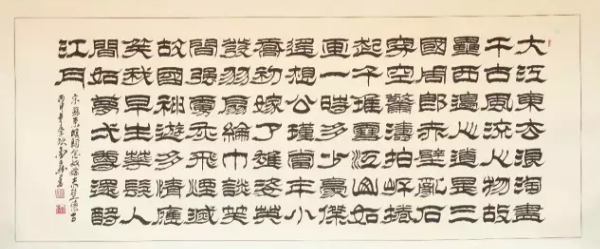 大江東去浪淘盡
千古風流人物故
壘西邊人道是三
國周郎赤壁亂石
穿空驚濤拍岸捲
起千堆雪江山如
畫一時多少豪傑
遥想公瑾當年小
喬初嫁了雄姿英
發羽扇綸巾談笑
間強虜灰飛煙滅
故國神遊多情應
笑我早生華髮人
間如夢弌尊還酹
江月
宋蘇東坡詞念奴嬌赤壁懷古
丙申年